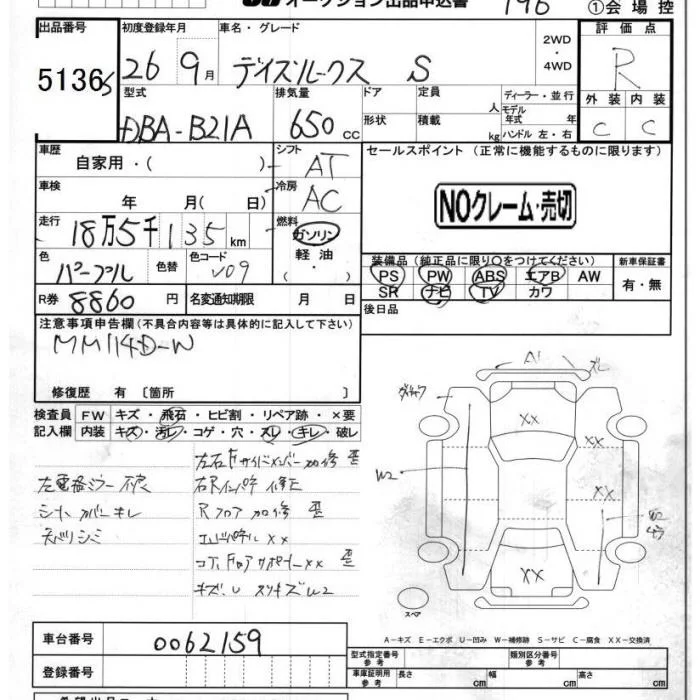 オークション出品申込書 196 ①会場控
出品番号 初度登録年月 車名・グレード 2WD・4WD 評価点
5136 26 9月 デイズルークス S R
型式 排気量 ドア 定員 人 ディーラー・並行
DBA-B21A 650cc 形状 積載 kg モデル年式 年 ハンドル 左・右
外装 内装
C C
車歴 自家用・( ) シフト AT セールスポイント (正常に機能するものに限ります)
車検 年 月( 日) 冷房 AC NOクレーム・売切
走行 18万5千135km 燃料 ガソリン 軽油 ( ・ )
装備品(純正品に限り○をつけてください) 新車保証書
PS PW ABS エアB AW 有・無
SR ナビ TV カワ
色 パープル 色替 色コード V09
R券 8860円 名変通知期限 月 日 後日品
注意事項申告欄(不具合内容等は具体的に記入して下さい)
MM114D-W
修復歴 有 〔箇所 〕
検査員記入欄 FW キズ・飛石・ヒビ割・リペア跡・×要
内装 キズ・汚レ・コゲ・穴・スレ・キレ・破レ
左電格ミラー不良
シートカバーキレ
天バリシミ
左右Fサイドメンバー加修 歪
右Rインパネ修正
Rフロア加修 歪
エンドパネルXX
コア, Fロアサポート XX 歪
キズ、U スリキズW2
A1
XX
XX
W2
XX
W2
XX
スペア
A-キズ E-エクボ U-凹み W-補修跡 S-サビ C-腐食 XX-交換済
車台番号 0062159
登録番号
型式指定番号 参考 類別区分番号 参考
車庫証明用 参考 長さ cm 幅 cm 高さ cm